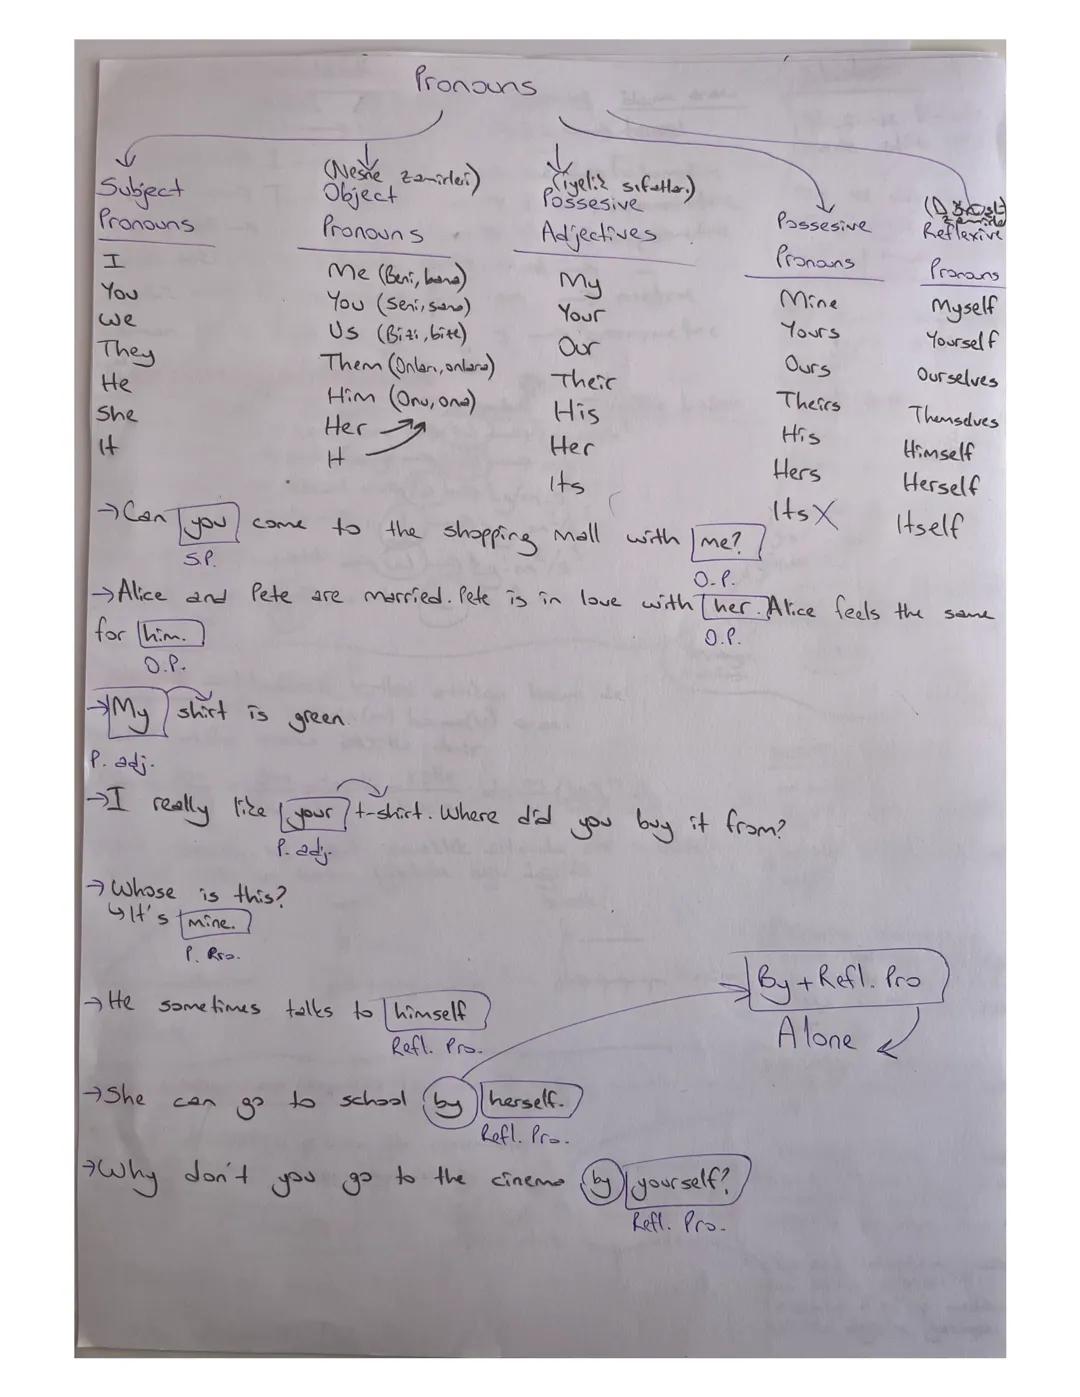 Pronouns
Subject
Pronouns
I
You
We
They
He
She
It
(Nesne zamirleri)
Object
Pronouns
Me (Beni, bana)
You (Seni, sana)
Us (Bizi, bize)
Them (Onları, onlara)
Him (Onu, ona)
Her
It
(iyelik sıfatları)
Possesive
Adjectives
My
Your
Our
Their
His
Her
Its
Possesive
Pronouns
Mine
Yours
Ours
Theirs
His
Hers
Its X
Reflexive
Pronouns
Myself
Yourself
Ourselves
Themselves
Himself
Herself
Itself
→Can you come to the shopping mall with me?
S.P.
O.P.
→Alice and Pete are married. Pete is in love with her. Alice feels the same
O.P.
for him.
O.P.
→My shirt is green.
P. adj.
→I really like your t-shirt. Where did you buy it from?
P. adj.
→Whose is this?
↳It's mine.
P. Pro.
→He sometimes talks to himself
Refl. Pro.
By + Refl. Pro
Alone
→She can go to school by herself.
Refl. Pro.
→Why don't you go to the cinema by yourself?
Refl. Pro.